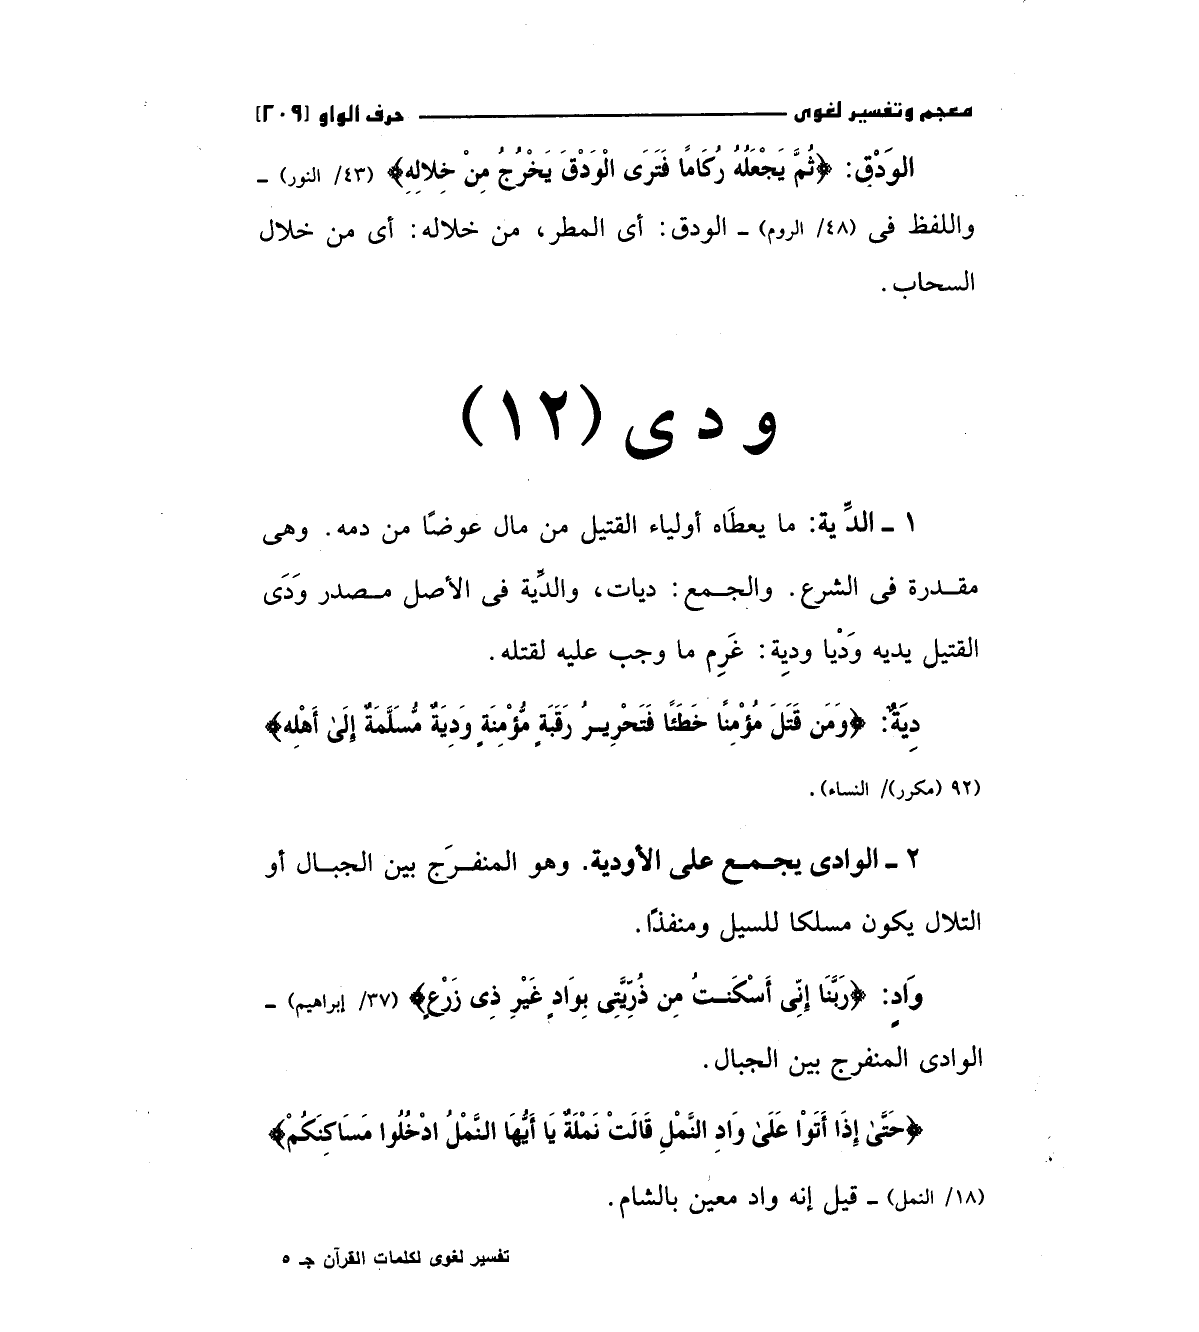 معجم وتفسير لغوى حرف الواو [٢٠٩]
الوَدْقِ: ﴿ثُمَّ يَجْعَلُهُ رُكَامًا فَتَرَى الْوَدْقَ يَخْرُجُ مِنْ خِلالِهِ﴾ (٤٣/ النور) ـ
واللفظ فى (٤٨/ الروم) ـ الودق: أى المطر، من خلاله: أى من خلال
السحاب.
و د ى (١٢)
١ ـ الدِّية: ما يعطَاه أولياء القتيل من مال عوضًا من دمه. وهى
مقدرة فى الشرع. والجمع: ديات، والدِّية فى الأصل مصدر وَدَى
القتيل يديه وَدْيا ودية: غَرِم ما وجب عليه لقتله.
دِيَةٌ: ﴿وَمَن قَتَلَ مُؤْمِنًا خَطَئًا فَتَحْرِيرُ رَقَبَةٍ مُّؤْمِنَةٍ وَدِيَةٌ مُّسَلَّمَةٌ إِلَىٰ أَهْلِهِ﴾
(٩٢ (مكرر)/ النساء).
٢ ـ الوادى يجمع على الأودية. وهو المنفرَج بين الجبال أو
التلال يكون مسلكا للسيل ومنفذًا.
وَادٍ: ﴿رَبَّنَا إِنِّى أَسْكَنتُ مِن ذُرِّيَّتِى بِوَادٍ غَيْرِ ذِى زَرْعٍ﴾ (٣٧/ إبراهيم) ـ
الوادى المنفرج بين الجبال.
﴿حَتَّىٰ إِذَا أَتَوْا عَلَىٰ وَادِ النَّمْلِ قَالَتْ نَمْلَةٌ يَا أَيُّهَا النَّمْلُ ادْخُلُوا مَسَاكِنَكُمْ﴾
(١٨/ النمل) ـ قيل إنه واد معين بالشام.
تفسير لغوى لكلمات القرآن جـ ٥